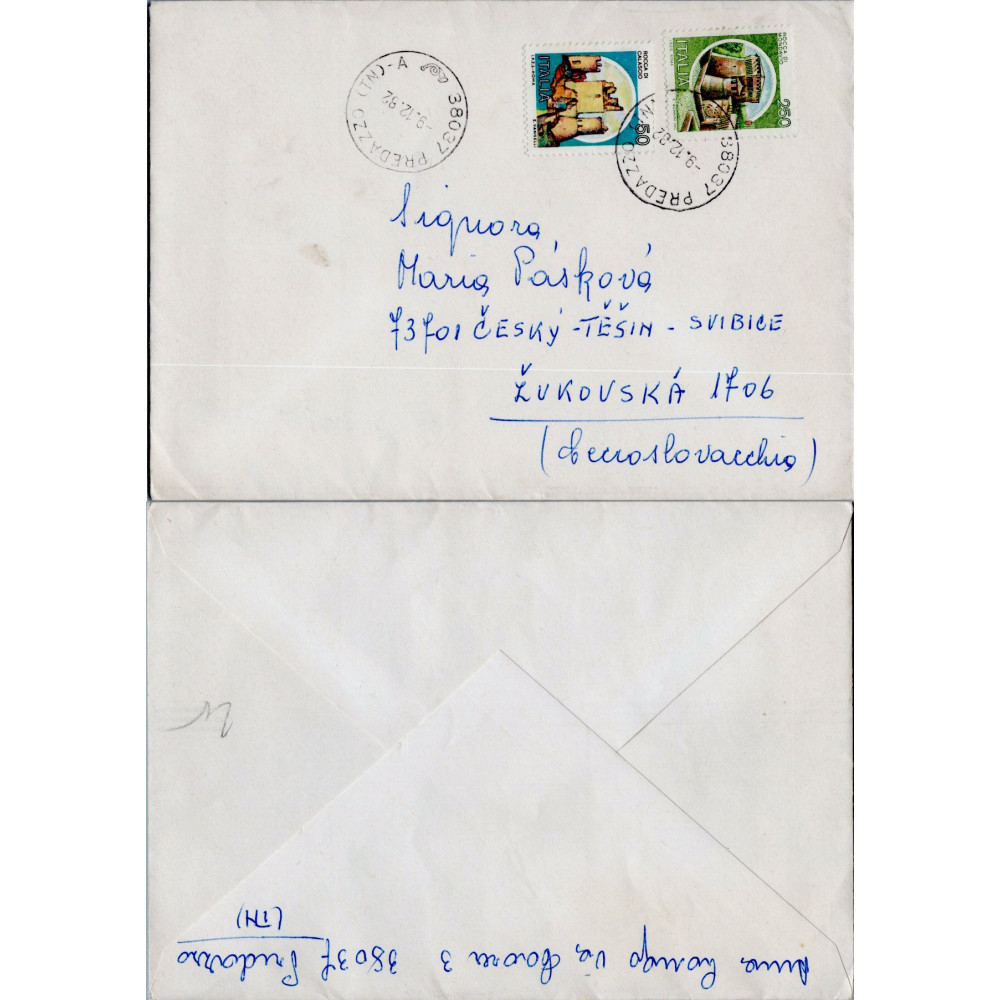 38037 PREDAZZO (TN) - A
-9.12.82
ITALIA
50
ROCCA DI CALASCIO
ITALIA
250
ROCCA DI MONDAVIO
38037 PREDAZZO
-9.12.82
Signora
Maria Pásková
73701 ČESKÝ - TĚŠÍN - SVIBICE
ŽUKOVSKÁ 1706
(Cecoslovacchia)
Via 3 38037 Predazzo
(TN)